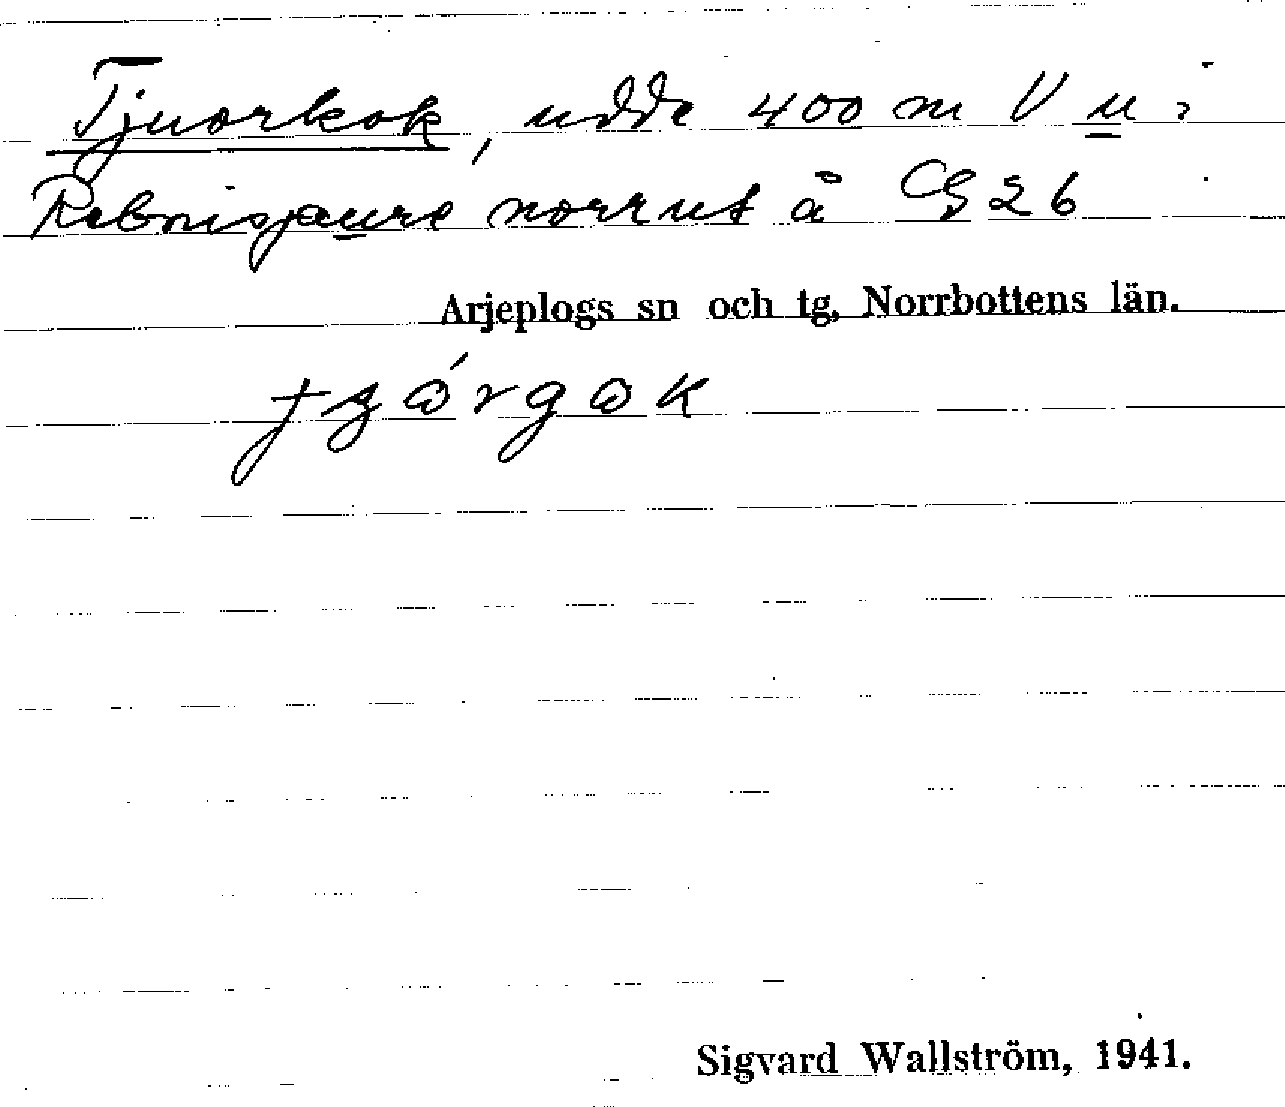 Tjuorkok, udde 400 m V u i
Rebnisjaure norrut å CG 26
Arjeplogs sn och tg, Norrbottens län.
Sigvard Wallström, 1941.